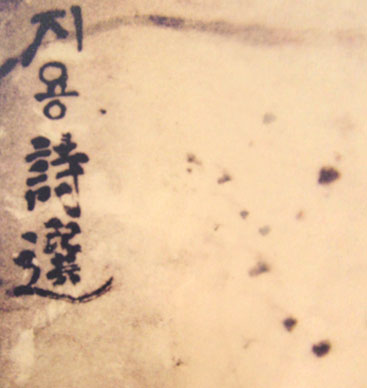 지용詩選